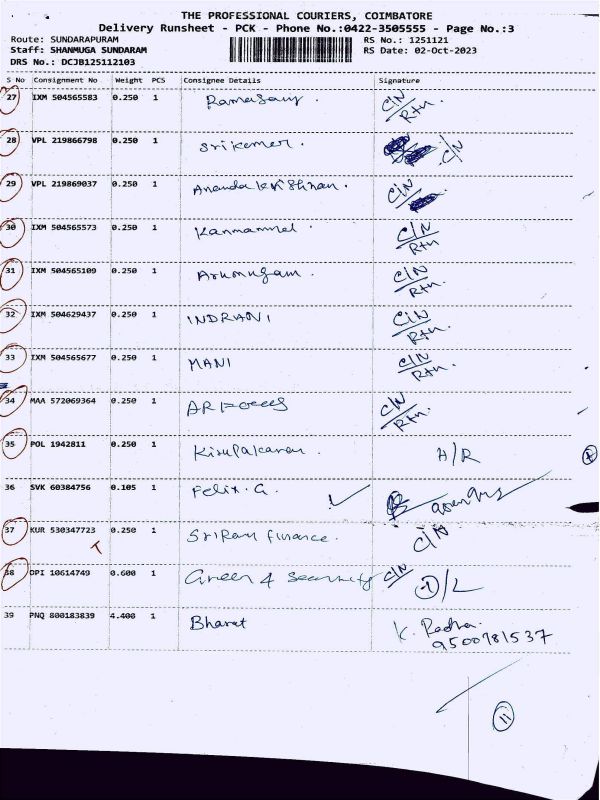 THE PROFESSIONAL COURIERS, COIMBATORE
Delivery Runsheet - PCK - Phone No.:0422-3505555 - Page No.:3
Route: SUNDARAPURAM RS No.: 1251121
Staff: SHANMUGA SUNDARAM RS Date: 02-Oct-2023
DRS No.: DCJB125112103
S No Consignment No Weight PCS Consignee Details Signature
27 IXM 504565583 0.250 1 Ramasamy. C/N Rtn
28 VPL 219866798 0.250 1 Srikumar. C/N
29 VPL 219869037 0.250 1 Ananda Krishnan. C/N
30 IXM 504565573 0.250 1 C/N Rtn
31 IXM 504565109 0.250 1 Arumugam. C/N Rtn.
32 IXM 504629437 0.250 1 INDRANI C/N Rtn.
33 IXM 504565677 0.250 1 MANI C/N Rtn.
34 MAA 572069364 0.250 1 C/N Rtn.
35 POL 1942811 0.250 1 A/R
36 SVK 60384756 0.105 1 Felix. G.
37 KUR 530347723 0.250 1 SriRam finance. C/N
38 OPI 10614749 0.600 1 Green 4 Security C/N D/L
39 PNQ 800183839 4.400 1 Bharat K. Radha.
9500981537
11